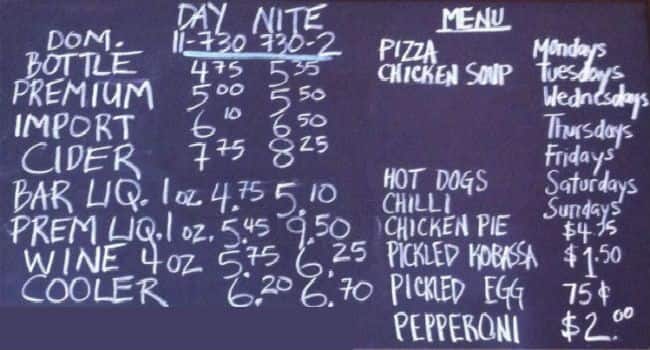 DAY NITE
11-730 730-2
DOM.
BOTTLE 4 75 5 35
PREMIUM 5 00 5 50
IMPORT 6 10 6 50
CIDER 7 75 8 25
BAR LIQ. 1 oz. 4.75 5.10
PREM LIQ. 1 oz. 5.45 9.50
WINE 4 oz 5.75 6.25
COOLER 6.20 6.70
MENU
PIZZA Mondays
CHICKEN SOUP Tuesdays
Wednesdays
Thursdays
Fridays
HOT DOGS Saturdays
CHILLI Sundays
CHICKEN PIE $4.75
PICKLED KOBASSA $1.50
PICKLED EGG 75¢
PEPPERONI $2.00